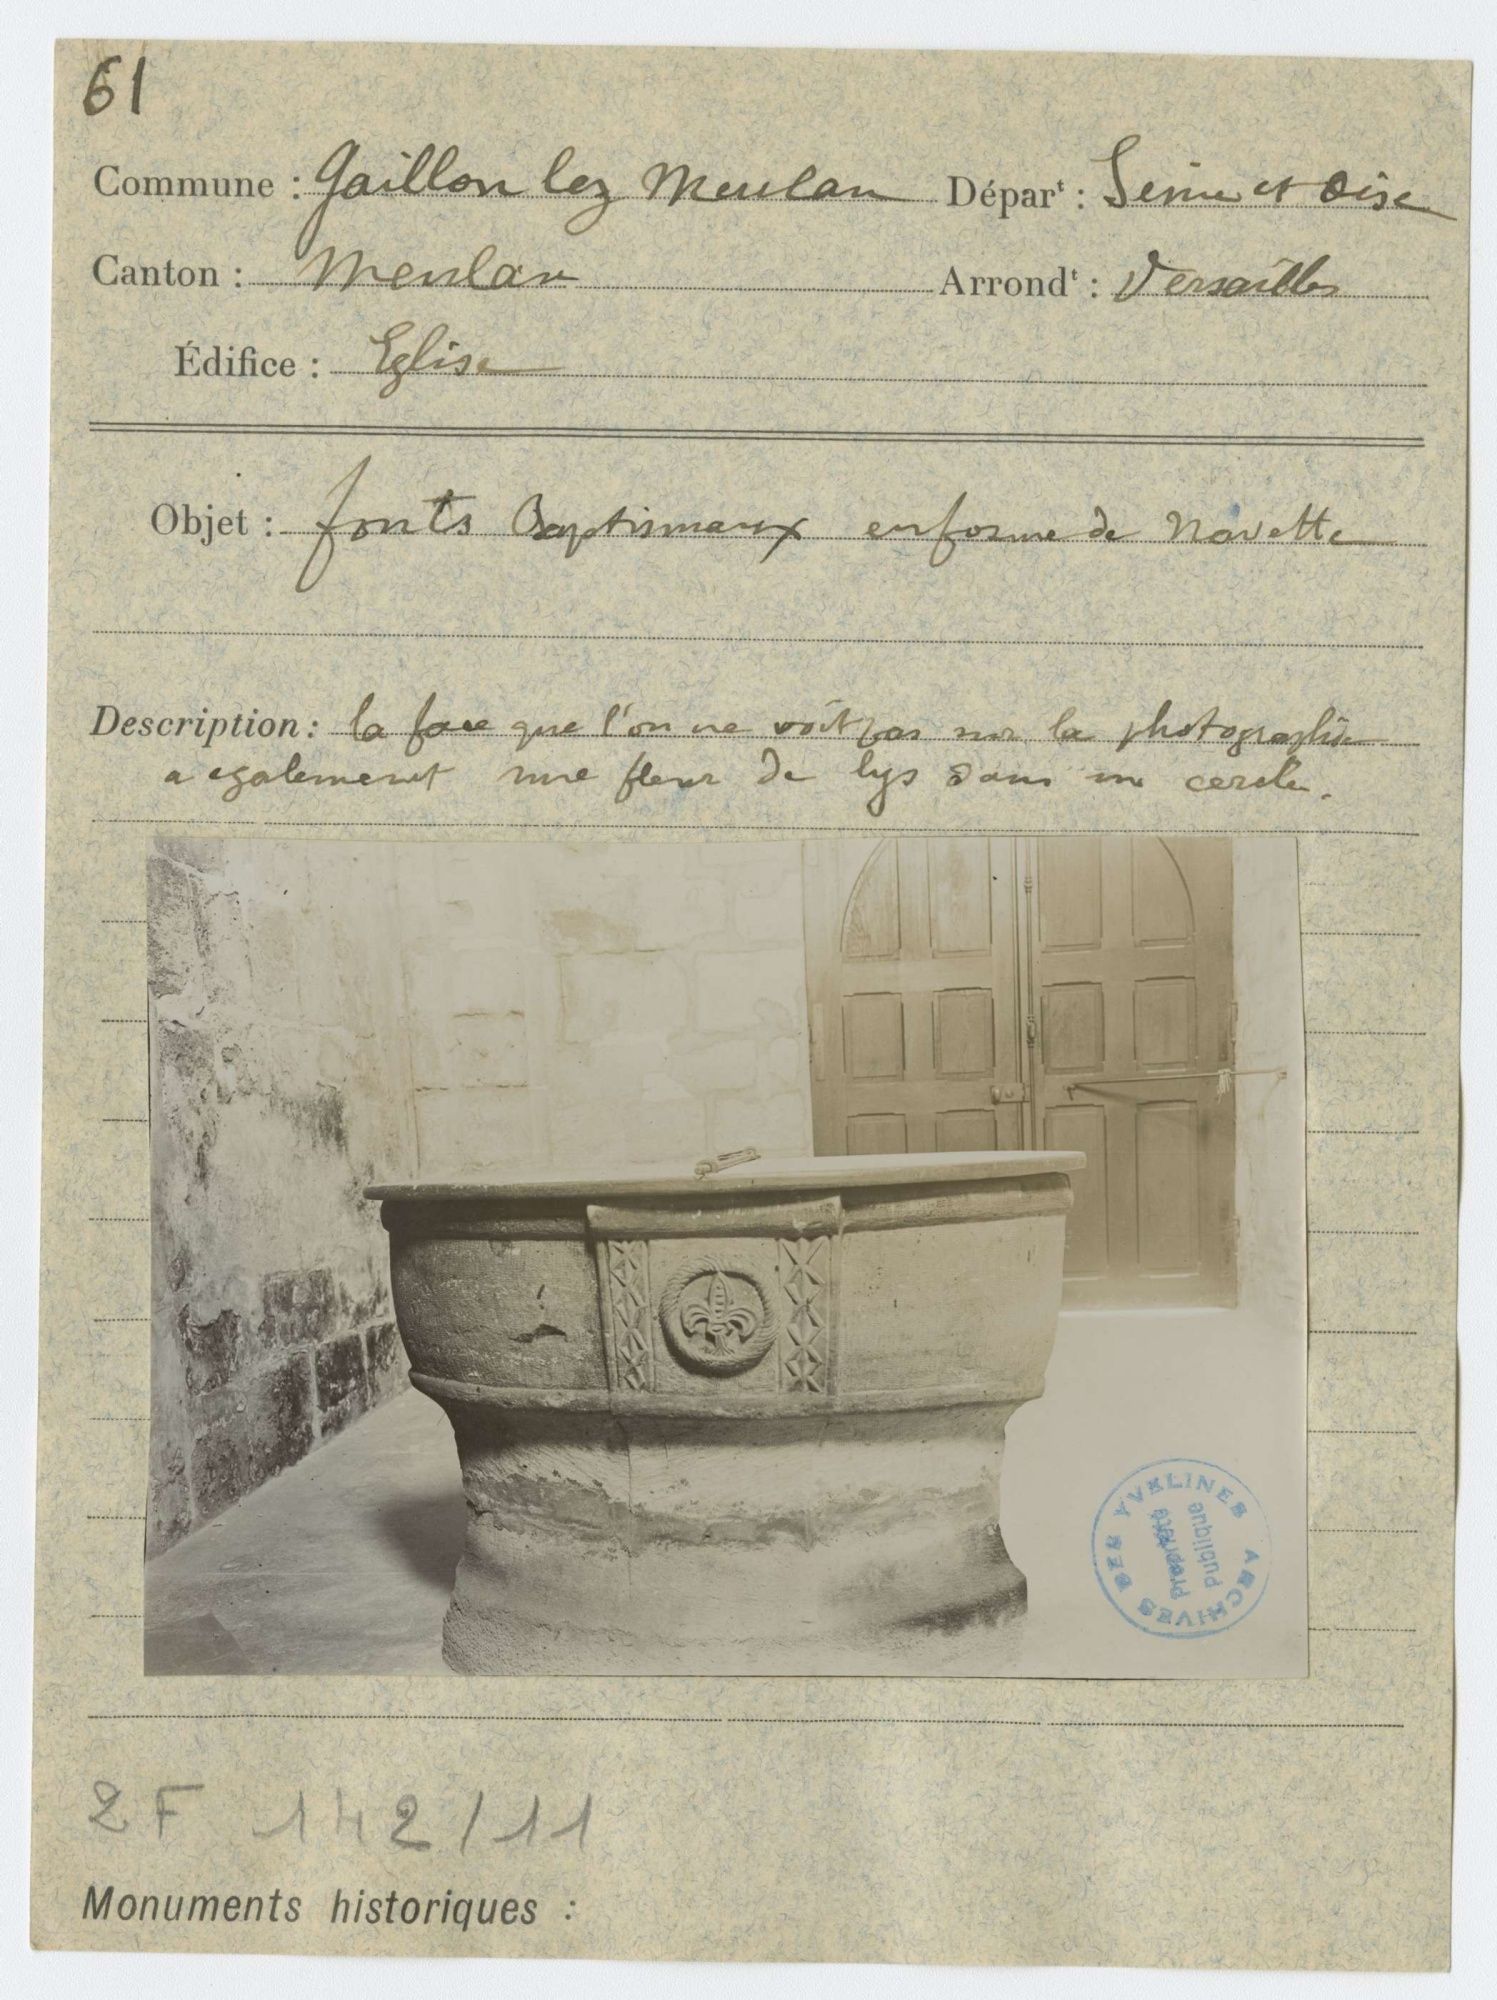 61
Commune : Gaillon lez Meulan Départ : Seine et Oise
Canton : Meulan Arrondt : Versailles
Édifice : Eglise
Objet : fonts Baptismaux en forme de Navette
Description : la face que l'on ne voit pas sur la photographie
a egalement une fleur de lys dans un cercle.
ARCHIVES DES YVELINES
Propriété
Publique
2F 142/11
Monuments historiques :